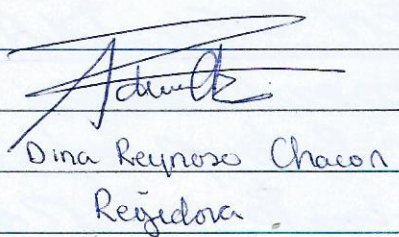 Dina Reynoso Chacon
Regidora